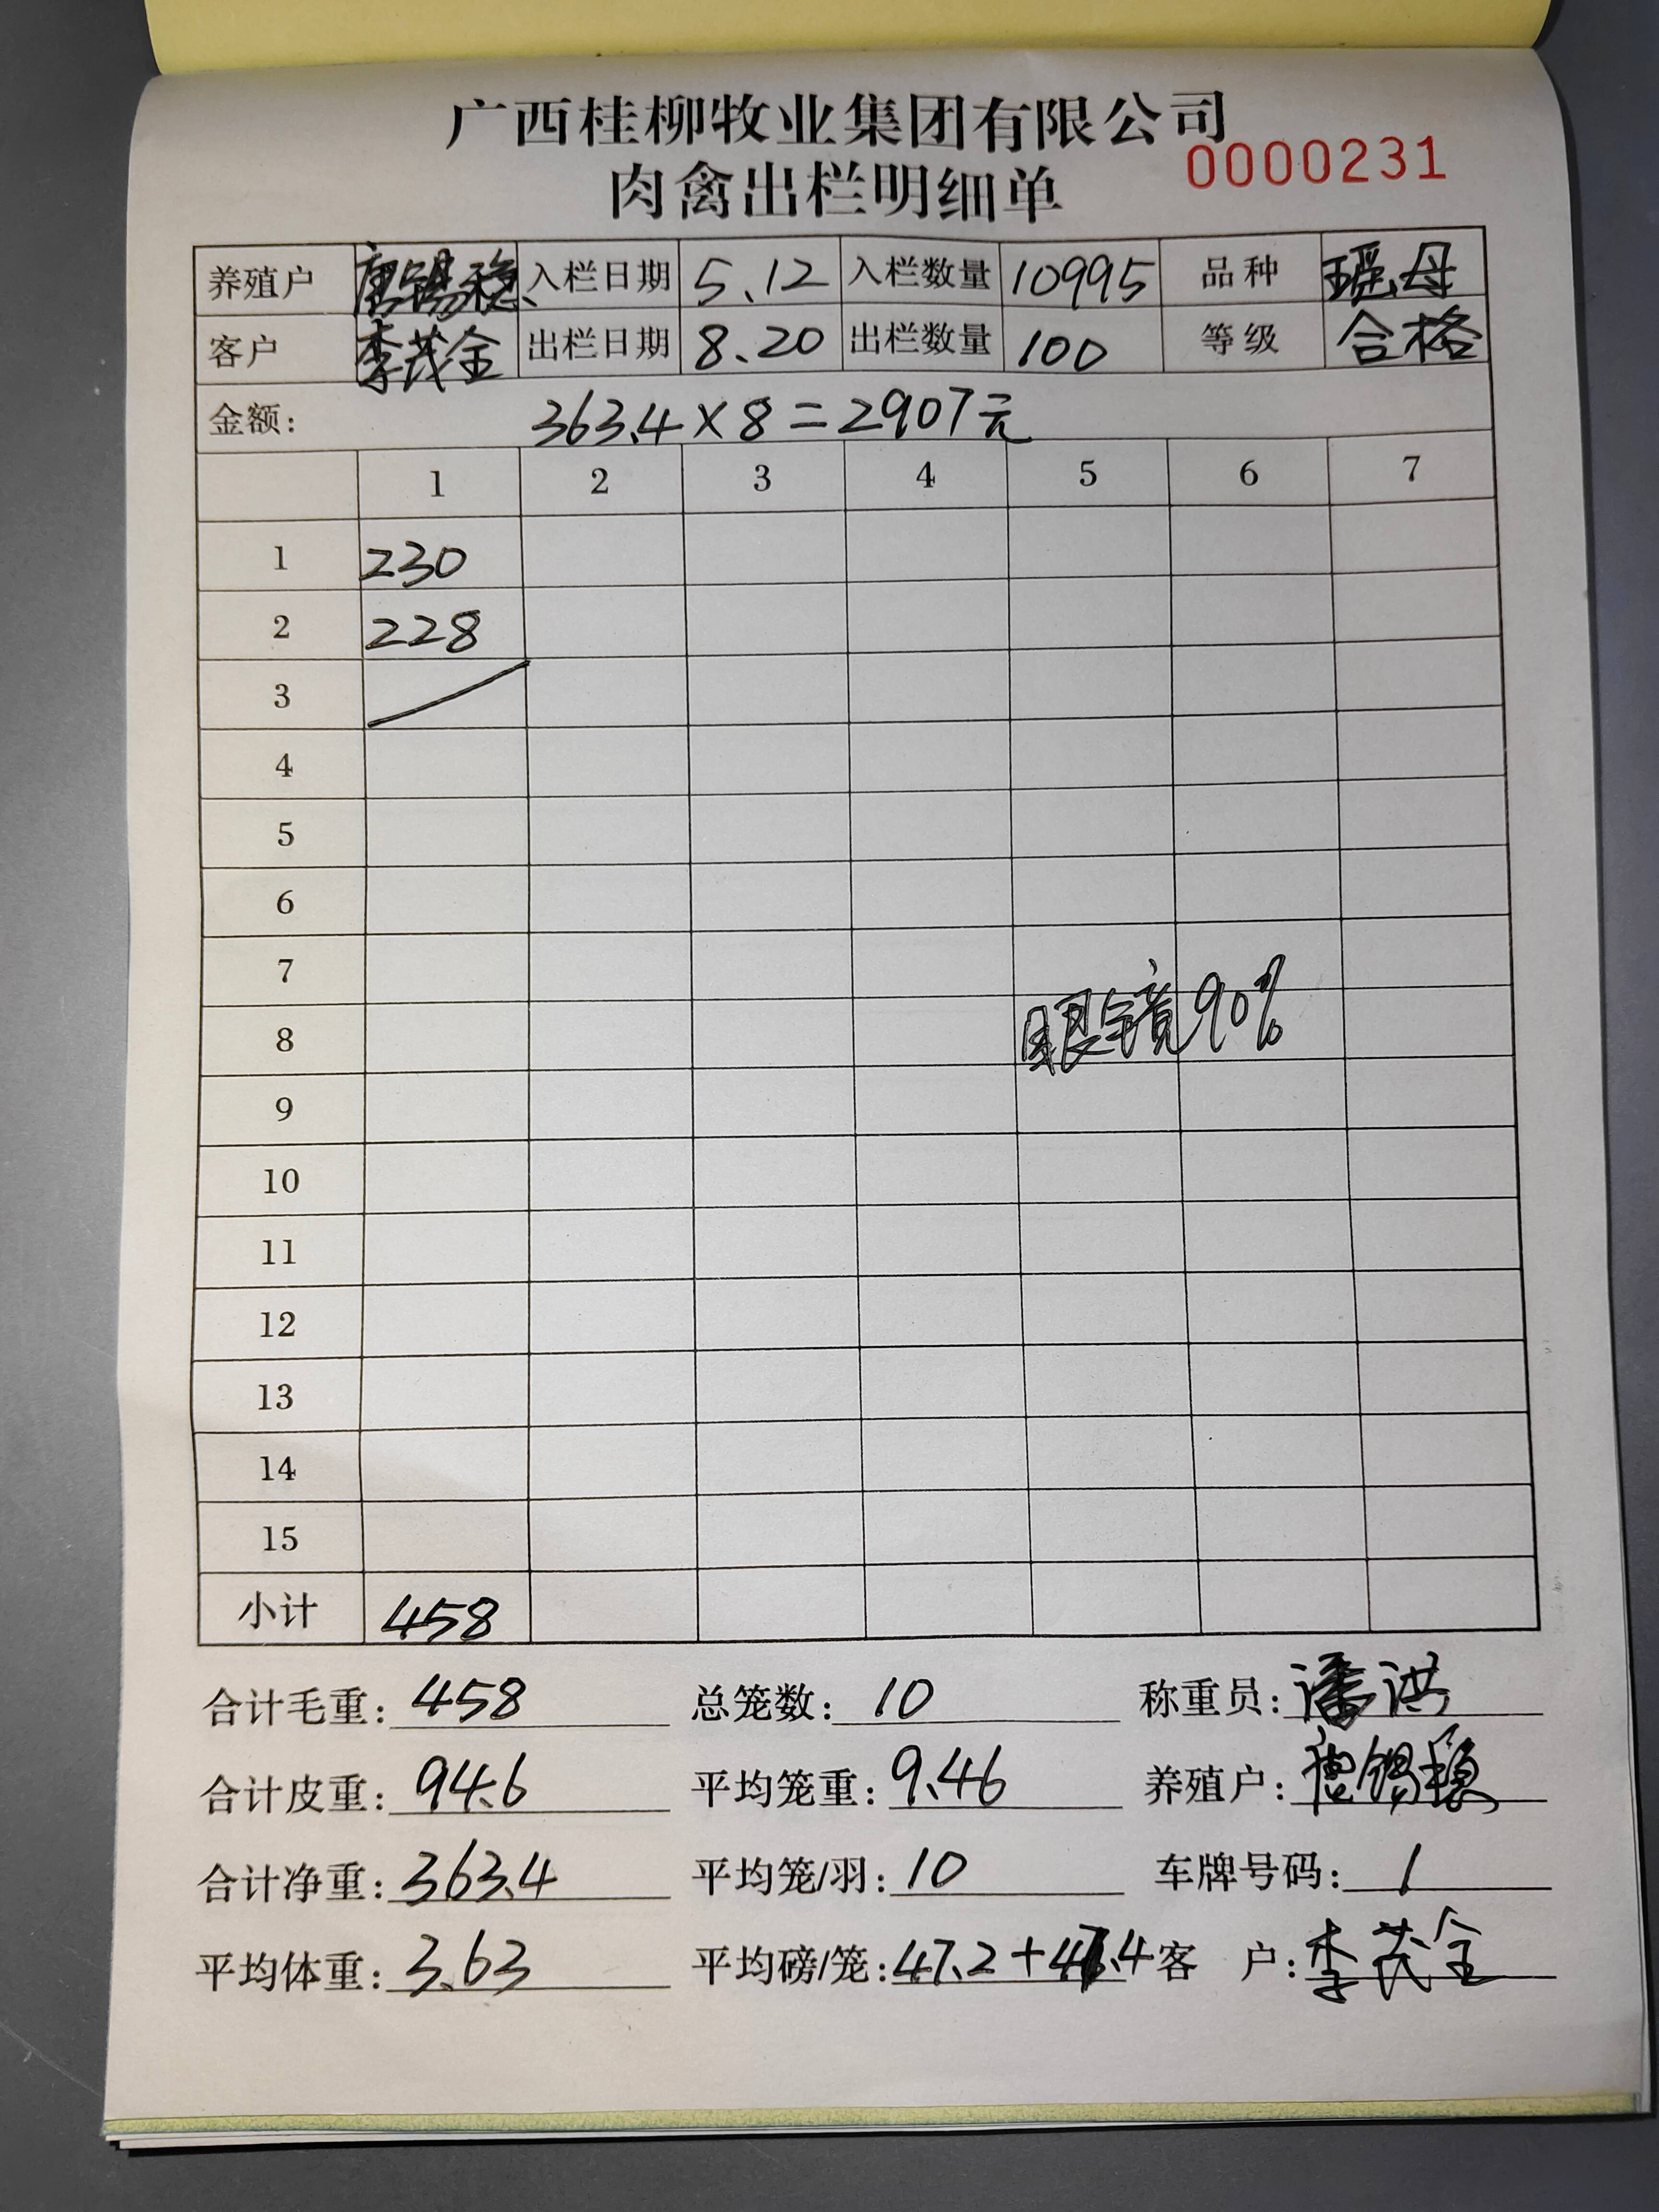 广西桂柳牧业集团有限公司
0000231
肉禽出栏明细单
养殖户 唐锡稳 入栏日期 5.12 入栏数量 10995 品种 瑶母
客户 李茂全 出栏日期 8.20 出栏数量 100 等级 合格
金额: 363.4×8=2907元
1 2 3 4 5 6 7
1 230
2 228
3
4
5
6
7
8 眼镜90%
9
10
11
12
13
14
15
小计 458
合计毛重: 458 总笼数: 10 称重员: 潘洪
合计皮重: 94.6 平均笼重: 9.46 养殖户: 唐锡稳
合计净重: 363.4 平均笼/羽: 10 车牌号码: 1
平均体重: 3.63 平均磅/笼: 47.2+47.4 客 户: 李茂全